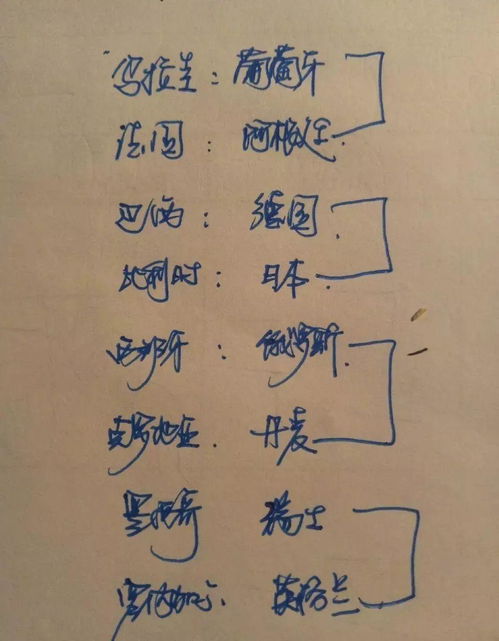 乌拉圭：葡萄牙
法国：阿根廷
巴西：德国
比利时：日本
西班牙：俄罗斯
克罗地亚：丹麦
墨西哥 瑞士
塞内加尔：英格兰